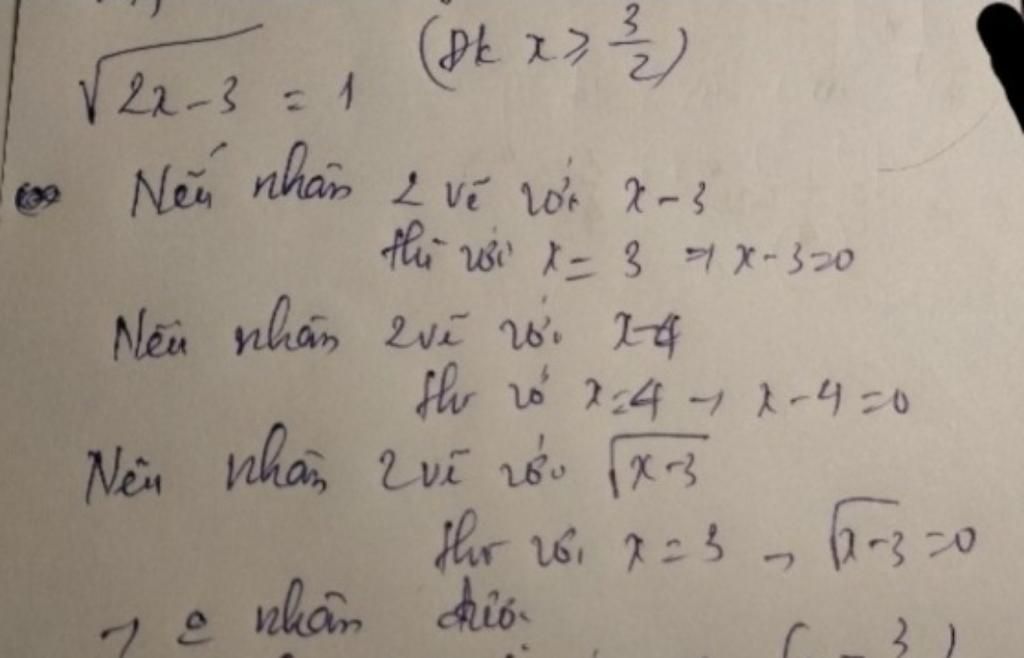 √2x-3 = 1 (Đk x ≥ 3/2)
Nếu nhân 2 vế với x-3
thì với x = 3 ⇒ x-3=0
Nếu nhân 2 vế với x-4
thì với x=4 → x-4=0
Nếu nhân 2 vế với √x-3
thì với x = 3 → √x-3=0
→ nhân